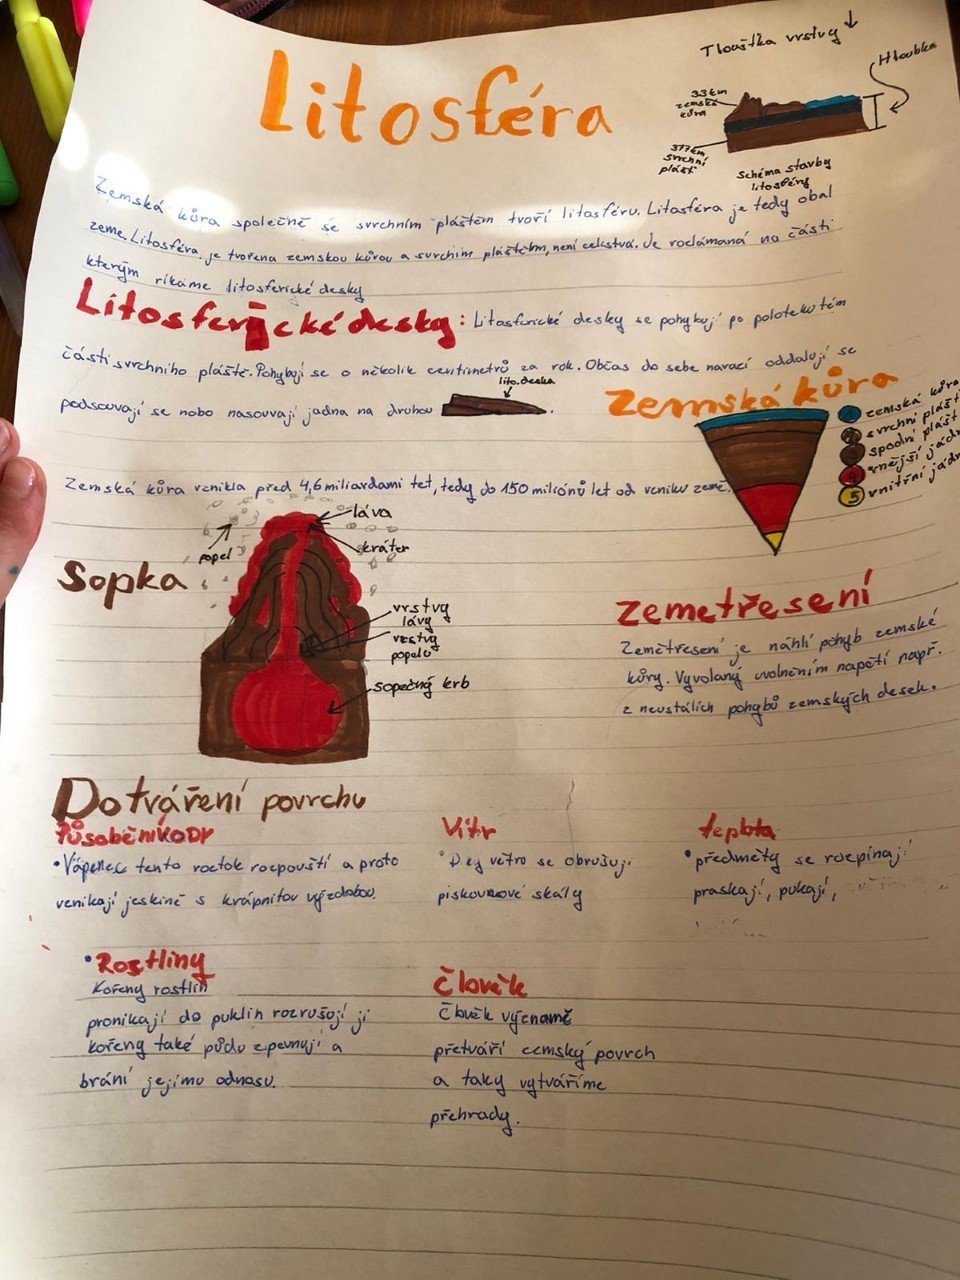 Tloušťka vrstvy
Hloubka
Litosféra
33km
zemská
kůra
377km
svrchní
plášť
Schéma stavby
litosféry
Zemská kůra společně se svrchním pláštěm tvoří litosféru. Litosféra je tedy obal
zeme. Litosféra je tvořena zemskou kůrou a svrchím pláštěm, není celistvá. Je rozlámaná na části
kterým říkáme litosferické desky
Litosferické desky: Litosferické desky se pohybují po polotekutém
části svrchního pláště. Pohybují se o několik centimetrů za rok. Občas do sebe narací oddalují se
podsouvají se nebo nasouvají jedna na druhou
lito. deska
Zemská kůra
1 zemská kůra
2 svrchní plášť
3 spodní plášť
4 vnější jádro
5 vnitřní jádro
Zemská kůra vznikla před 4,6 miliardami let, tedy do 150 miliónů let od vzniku země.
láva
kráter
popel
Sopka
vrstvy
lávy
vrstvy
popelu
sopečný krb
zemetřesení
Zemětřesení je náhlí pohyb zemské
kůry. Vyvolaný uvolněním napětí např.
z neustálích pohybů zemských desek.
Dotváření povrchu
Působení vody
•Vápenec tento roztok rozpouští a proto
venikají jeskině s krápnitou výzdobou.
Vítr
•Díky větro se obrušují
pískovcové skály
teplota
•předměty se rozpínají
praskají, pukají,
•Rostliny
Kořeny rostlin
pronikají do puklin rozrušují ji
kořeny také půdu zpevnují a
brání jejímu odnosu.
Člověk
Člověk význámě
přetváří zemský povrch
a taky vytváříme
přehrady.